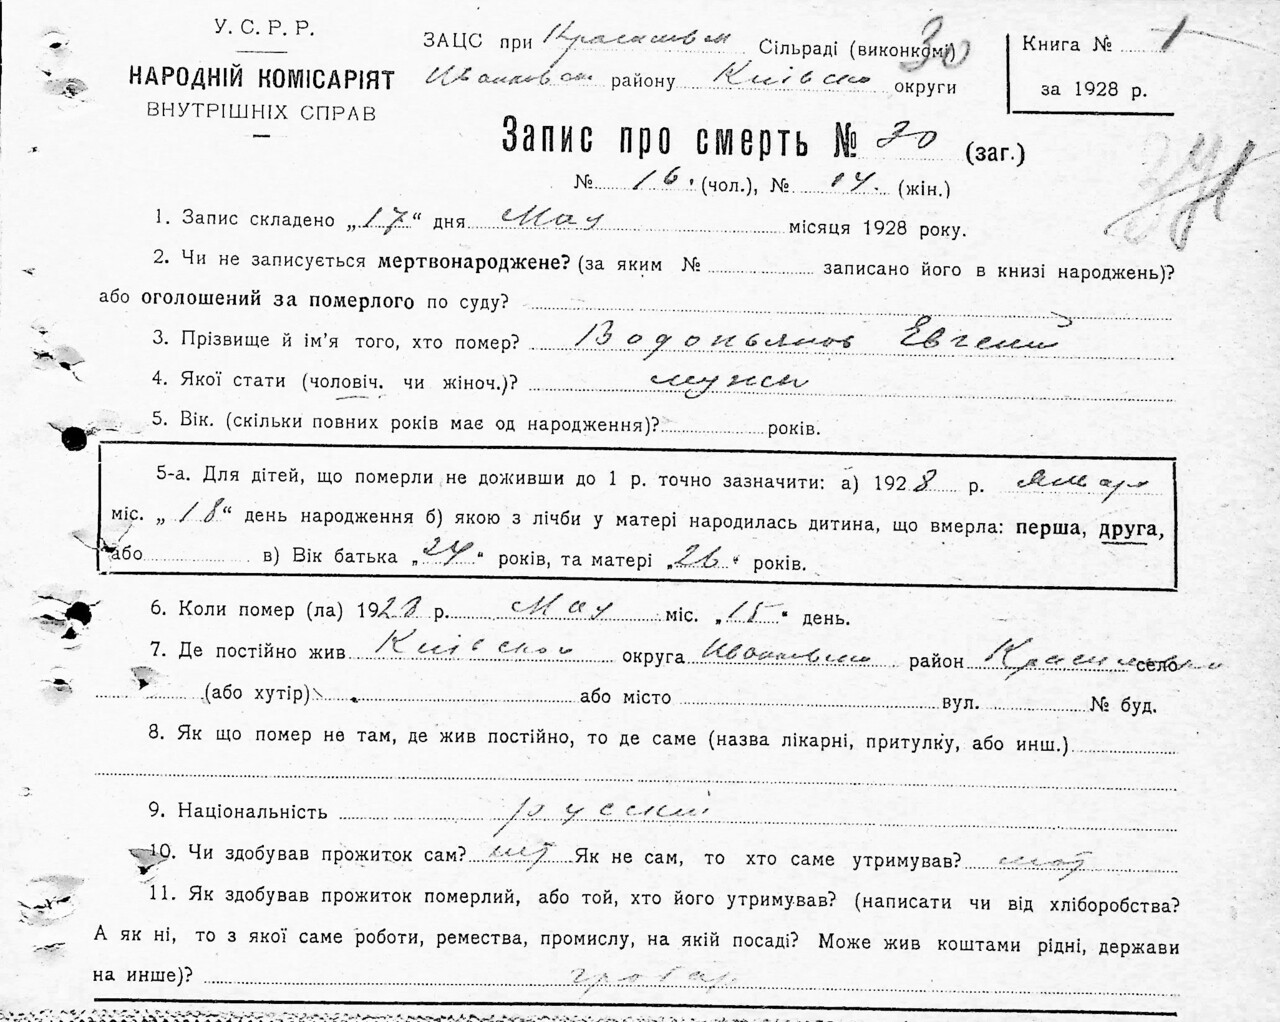 У. С. Р. Р.
НАРОДНІЙ КОМІСАРІЯТ
ВНУТРІШНІХ СПРАВ
ЗАЦС при Сільраді (виконкомі)
30
району Київско округи
Книга № 1
за 1928 р.
Запис про смерть № 30 (заг.)
№ 16. (чол.), № 14. (жін.)
1. Запис складено „17“ дня Мая місяця 1928 року.
2. Чи не записується мертвонароджене? (за яким № записано його в книзі народжень)?
або оголошений за померлого по суду?
3. Прізвище й ім'я того, хто помер? Водопьянов Евгений
4. Якої стати (чоловіч. чи жіноч.)?
5. Вік. (скільки повних років має од народження)? років.
5-а. Для дітей, що померли не доживши до 1 р. точно зазначити: а) 1928 р. Январ
міс. „18“ день народження б) якою з лічби у матері народилась дитина, що вмерла: перша, друга,
або в) Вік батька „24“ років, та матері „26“ років.
6. Коли помер (ла) 1928 р. Мая міс. „15“ день.
7. Де постійно жив Киівской округа район село
(або хутір) або місто вул. № буд.
8. Як що помер не там, де жив постійно, то де саме (назва лікарні, притулку, або инш.)
9. Національність русский
10. Чи здобував прожиток сам? нет Як не сам, то хто саме утримував?
11. Як здобував прожиток померлий, або той, хто його утримував? (написати чи від хліборобства?
А як ні, то з якої саме роботи, ремества, промислу, на якій посаді? Може жив коштами рідні, держави
на инше)?